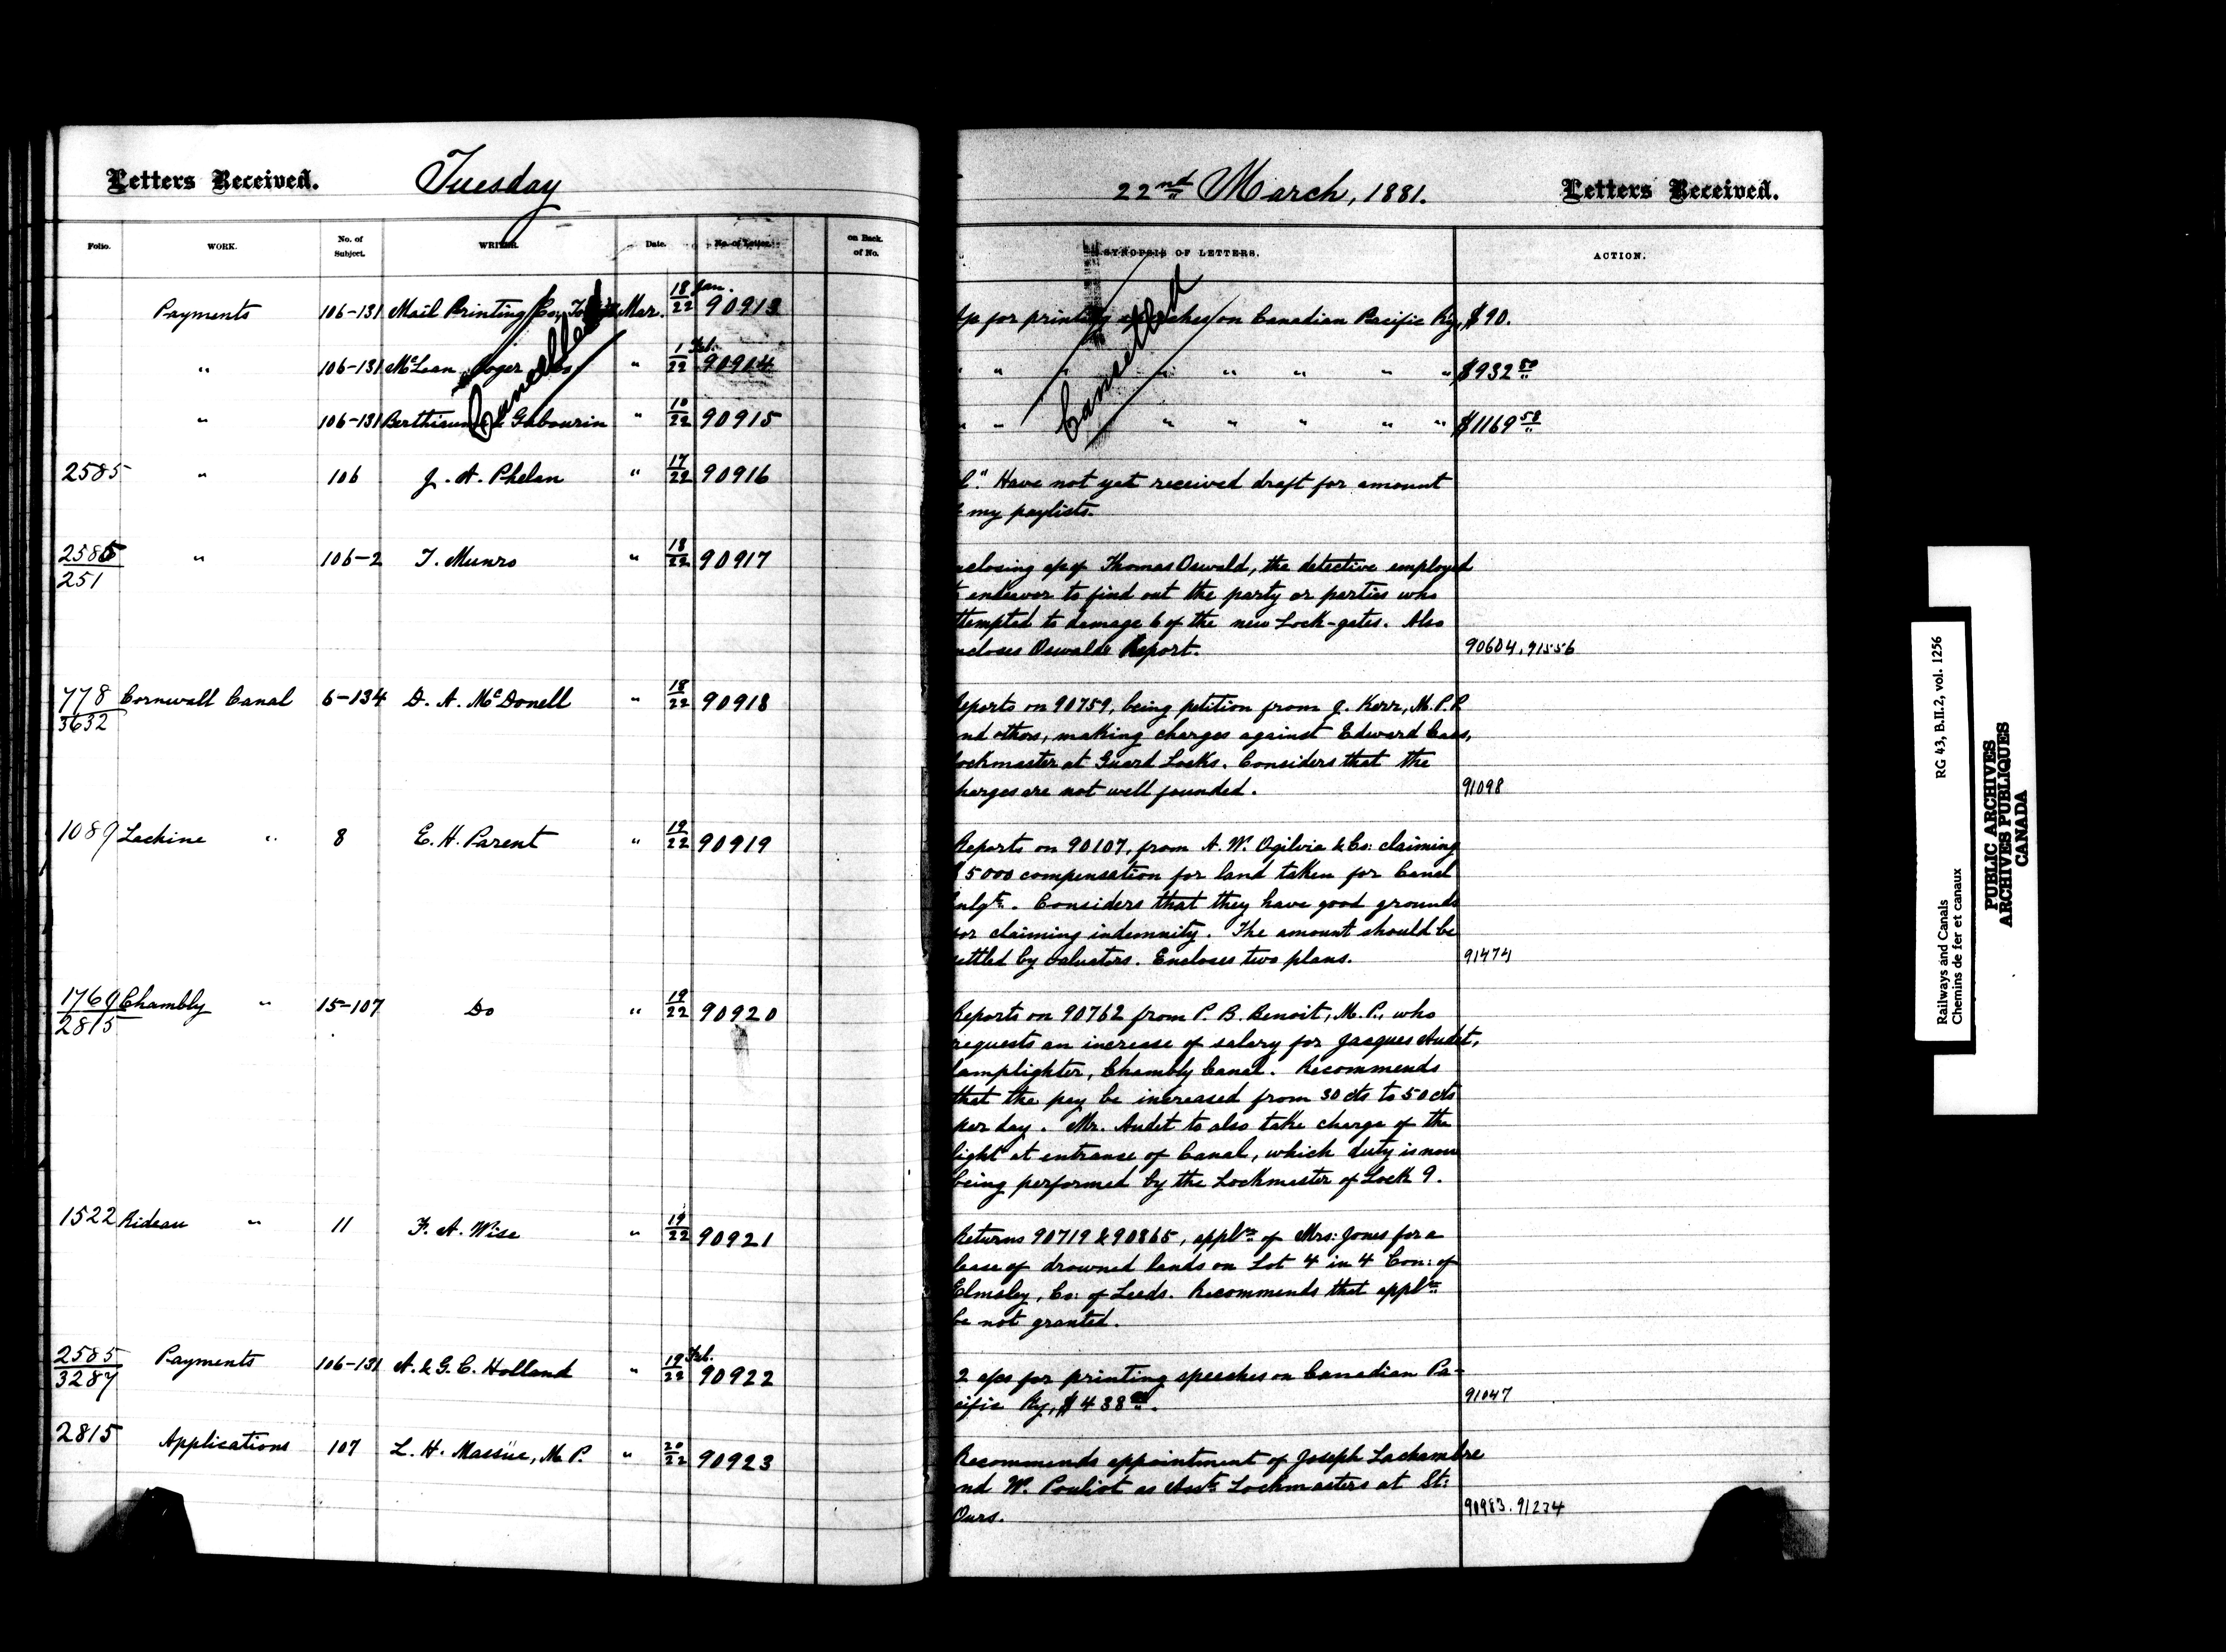 Letters Received. Tuesday
22nd March, 1881. Letters Received.
Folio. WORK. No. of Subject. WRITER. Date. No. of Letter. on Back of No. SYNOPSIS OF LETTERS. ACTION.
Payments 106-131 Mail Printing Co, Mar. 18 Jan./22 90913 for printing speeches on Canadian Pacific Ry, $90.
" 106-131 McLean, Roger & Co " 1 Feb./22 90904 " " " " " " " $932 50
" 106-131 Berthiaume & Gabourin " 10/22 90915 " " " " " " " $1169 58
Cancelled
Cancelled
2585 " 106 J. A. Phelan " 17/22 90916 Have not yet received draft for amount
my paylists.
2585/251 " 106-2 T. Munro " 18/22 90917 nclosing a/c of Thomas Oswald, the detective employed
endeavor to find out the party or parties who
ttempted to damage 6 of the new Lock-gates. Also
ncloses Oswalds Report. 90604. 91556
778/3632 Cornwall Canal 6-134 D. A. McDonell " 18/22 90918 Reports on 90759, being petition from J. Kerr, M.P.P.
nd others, making charges against Edward Cass,
Lockmaster at Guard Locks. Considers that the
harges are not well founded. 91098
1089 Lachine " 8 E. H. Parent " 19/22 90919 Reports on 90107, from A. W. Ogilvie & Co: claiming
$5000 compensation for land taken for Canal
nlgt. Considers that they have good grounds
for claiming indemnity. The amount should be
settled by valuators. Encloses two plans. 91474
1769/2815 Chambly " 15-107 Do " 19/22 90920 Reports on 90762 from P. B. Benoit, M.P., who
requests an increase of salary for Jacques Audet,
lamplighter, Chambly Canal. Recommends
that the pay be increased from 30 cts to 50 cts
per day. Mr. Audet to also take charge of the
light at entranse of Canal, which duty is now
being performed by the Lockmaster of Lock 9.
1522 Rideau " 11 F. A. Wise " 19/22 90921 Returns 90719 & 90865, appln of Mrs: Jones for a
lease of drowned lands on Lot 4 in 4 Con: of
Elmsley, Co: of Leeds. Recommends that appln
be not granted.
2585/3287 Payments 106-131 A. & G. C. Holland " 19 Feb./22 90922 2 a/cs for printing speeches on Canadian Pa-
cific Ry, $438 . 91047
2815 Applications 107 L. H. Massue, M.P. " 20/22 90923 Recommends appointment of Joseph Lachambre
nd W. Pouliot as Asst. Lockmasters at St:
Ours. 90983. 91234
Railways and Canals RG 43, B.II.2, vol. 1256
Chemins de fer et canaux
PUBLIC ARCHIVES
ARCHIVES PUBLIQUES
CANADA